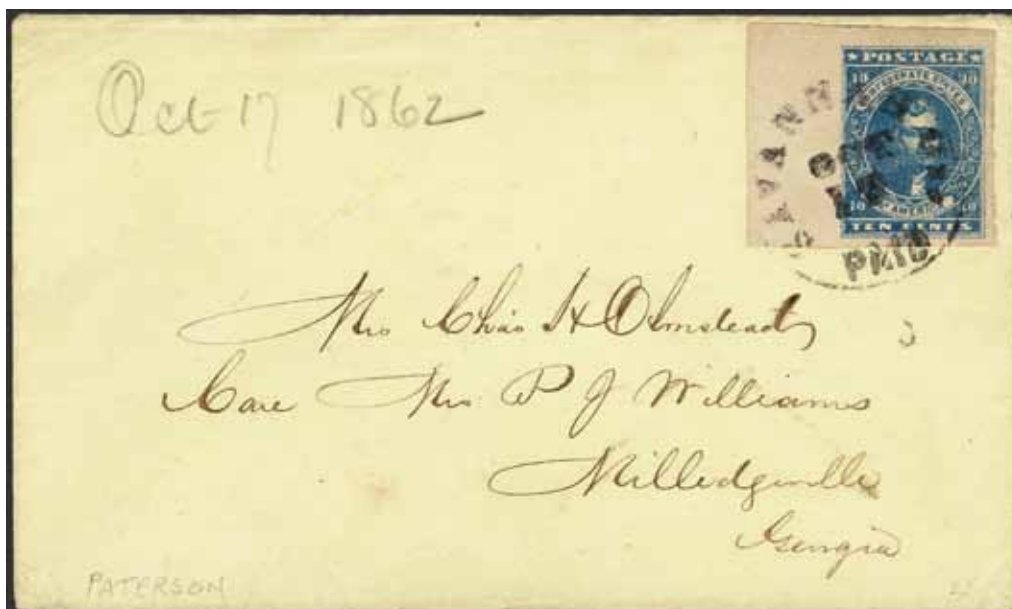 Oct 17 1862
POSTAGE
10 10
CONFEDERATE STATES
OF AMERICA
10 10
TEN CENTS
SAVANNAH
OCT
PAID
Mrs Chas H Olmstead
Care Mrs P J Williams
Milledgeville
Georgia
PATERSON